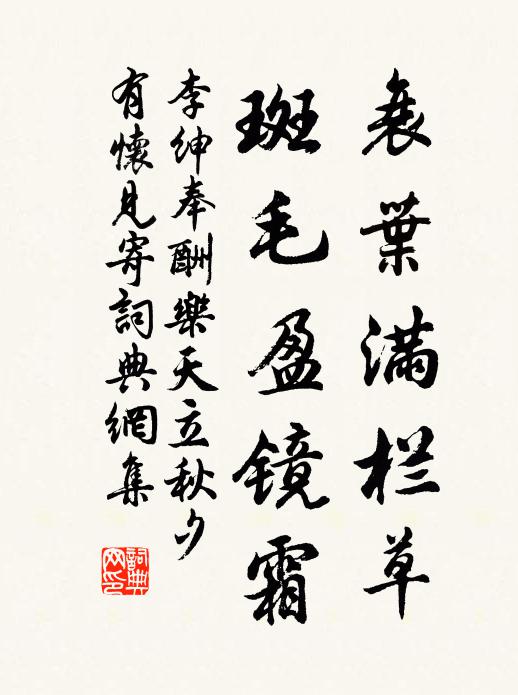 衰葉满栏草
斑毛盈镜霜
李紳奉酬樂天立秋夕
有懷見寄詞典網集
詞典网印